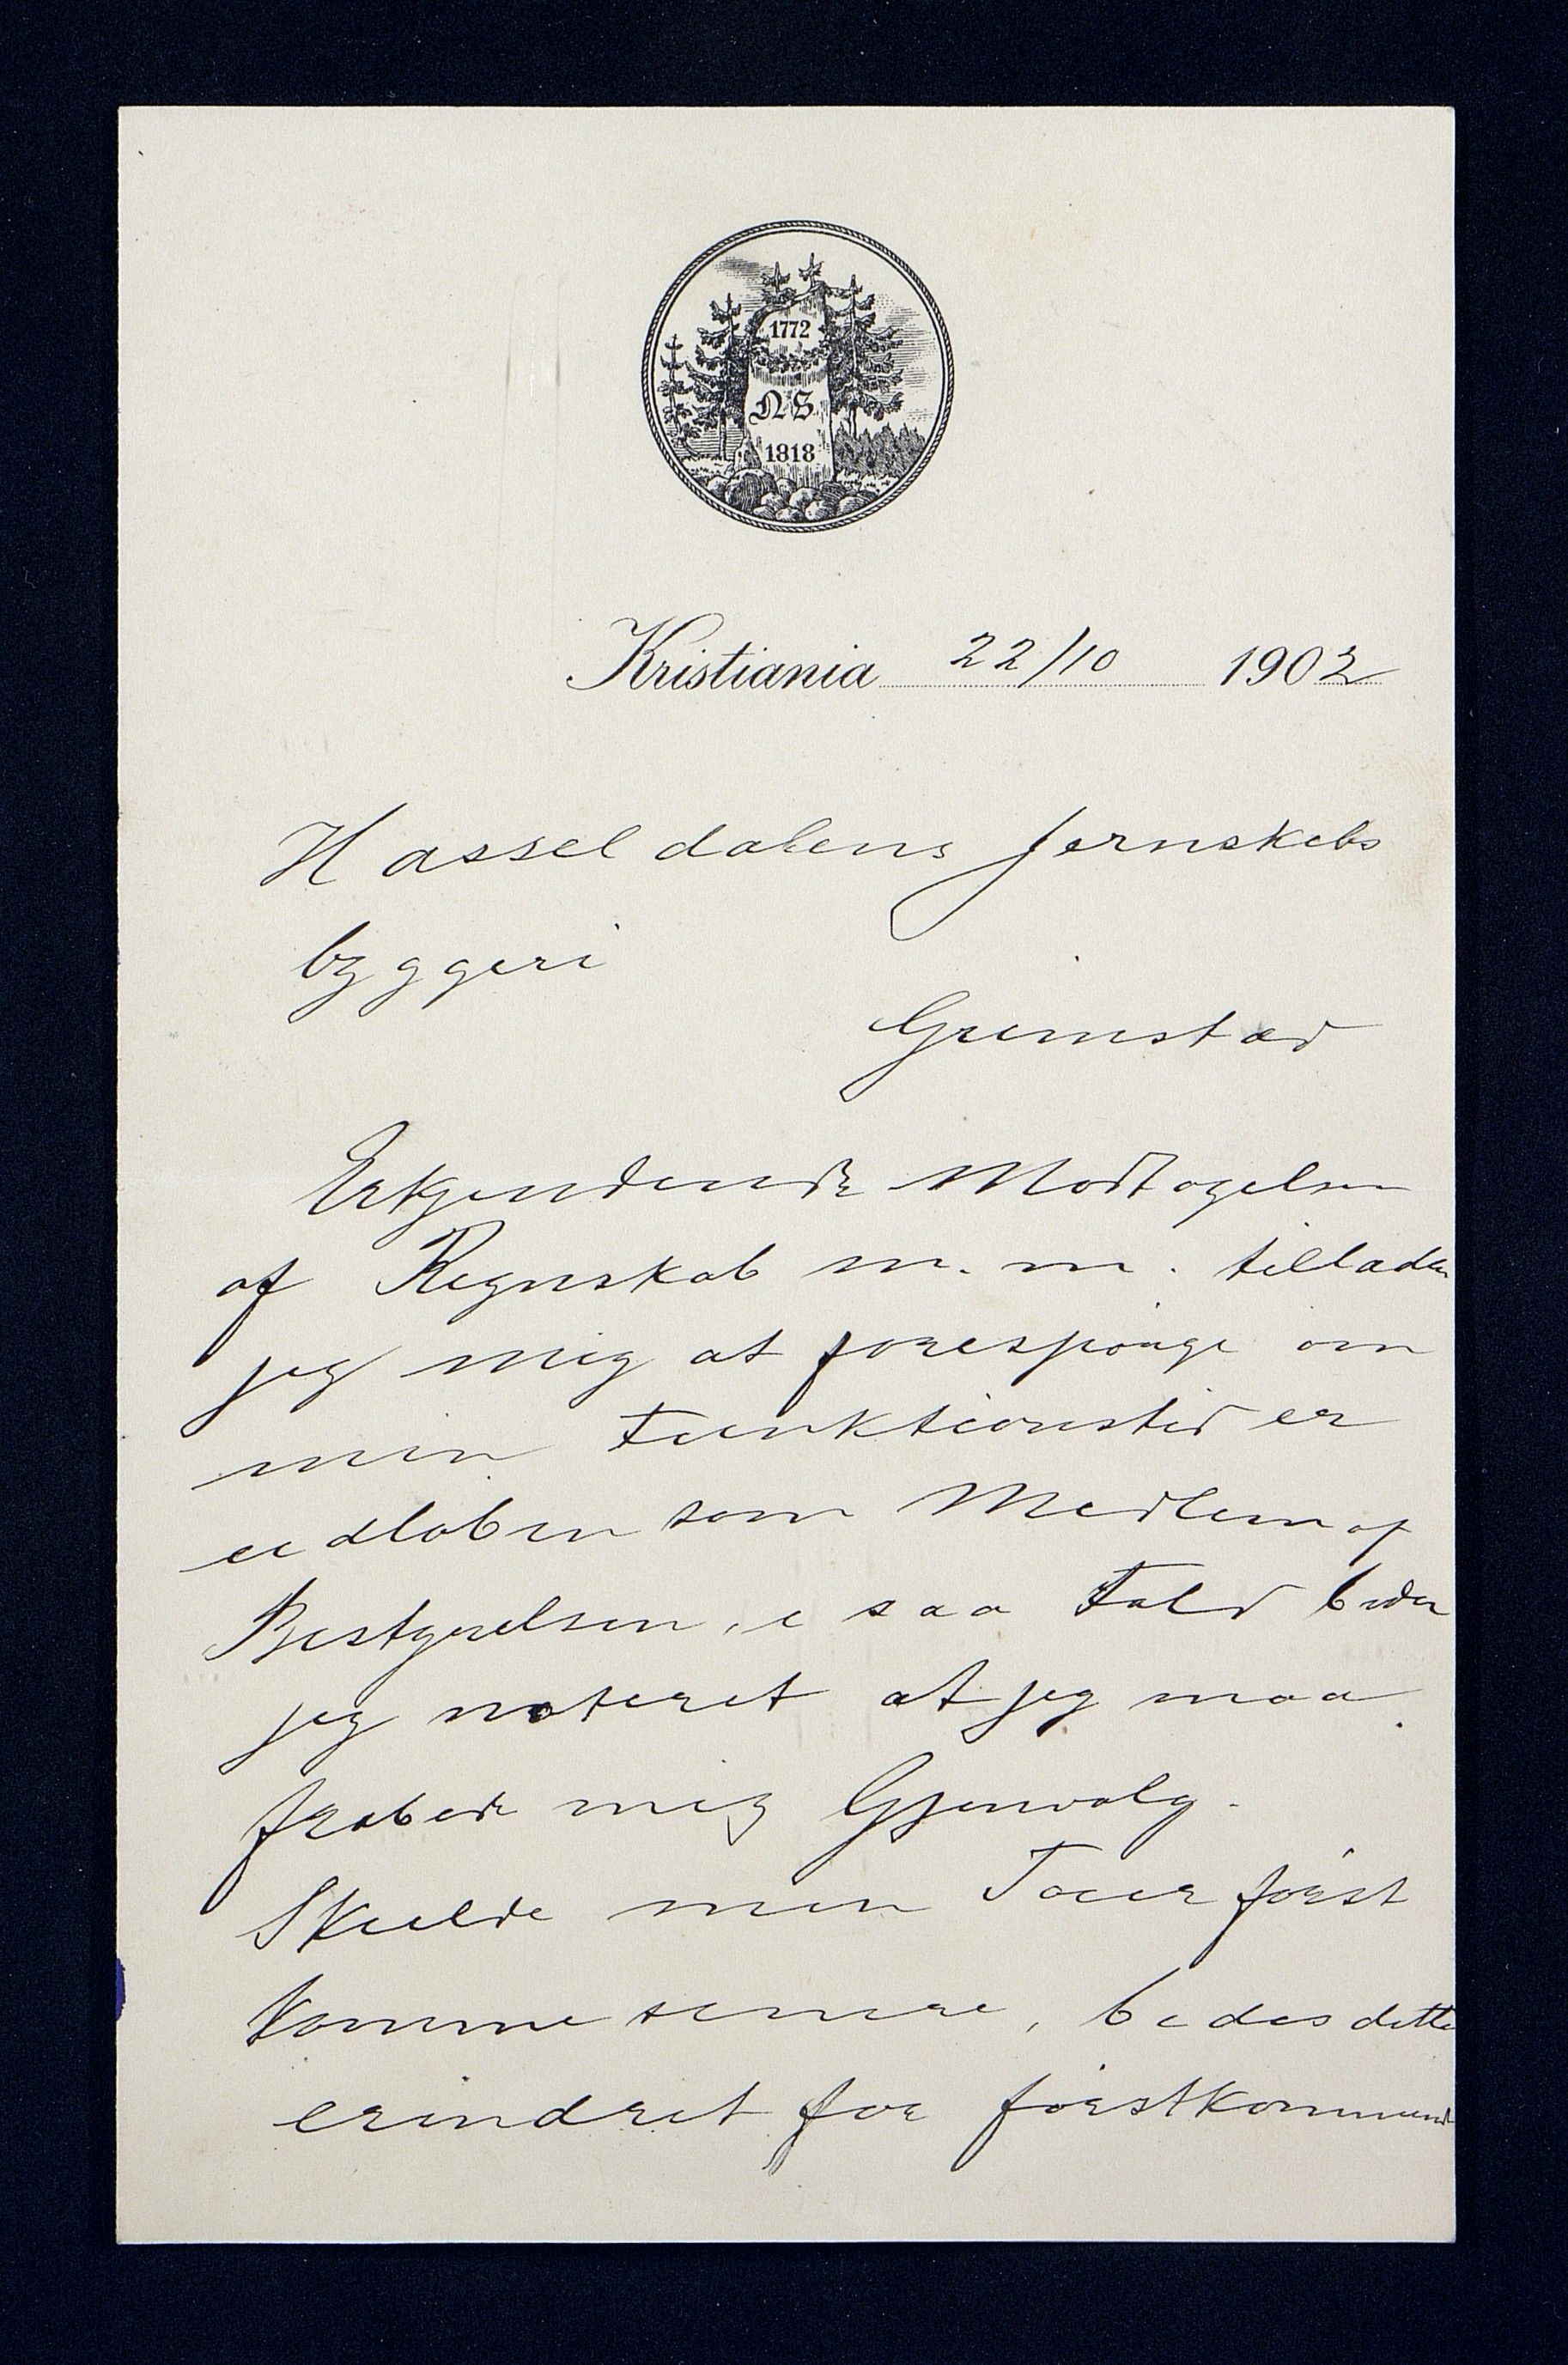 1772
N S.
1818
Kristiania 22/10 1902
Hasseldalens Jernskibs
byggeri
Grimstad
Erkjendende Modtagelsen
af Regnskab m. m. tillader
jeg mig at forespörge om
min Funktionstid er
udloben som Medlem af
Bestyrelsen, i saa Fald beder
jeg noteret at jeg maa
frabede mig Gjenvalg.
Skulde min Tour först
komme senere, bedes dette
erindret for förstkommend